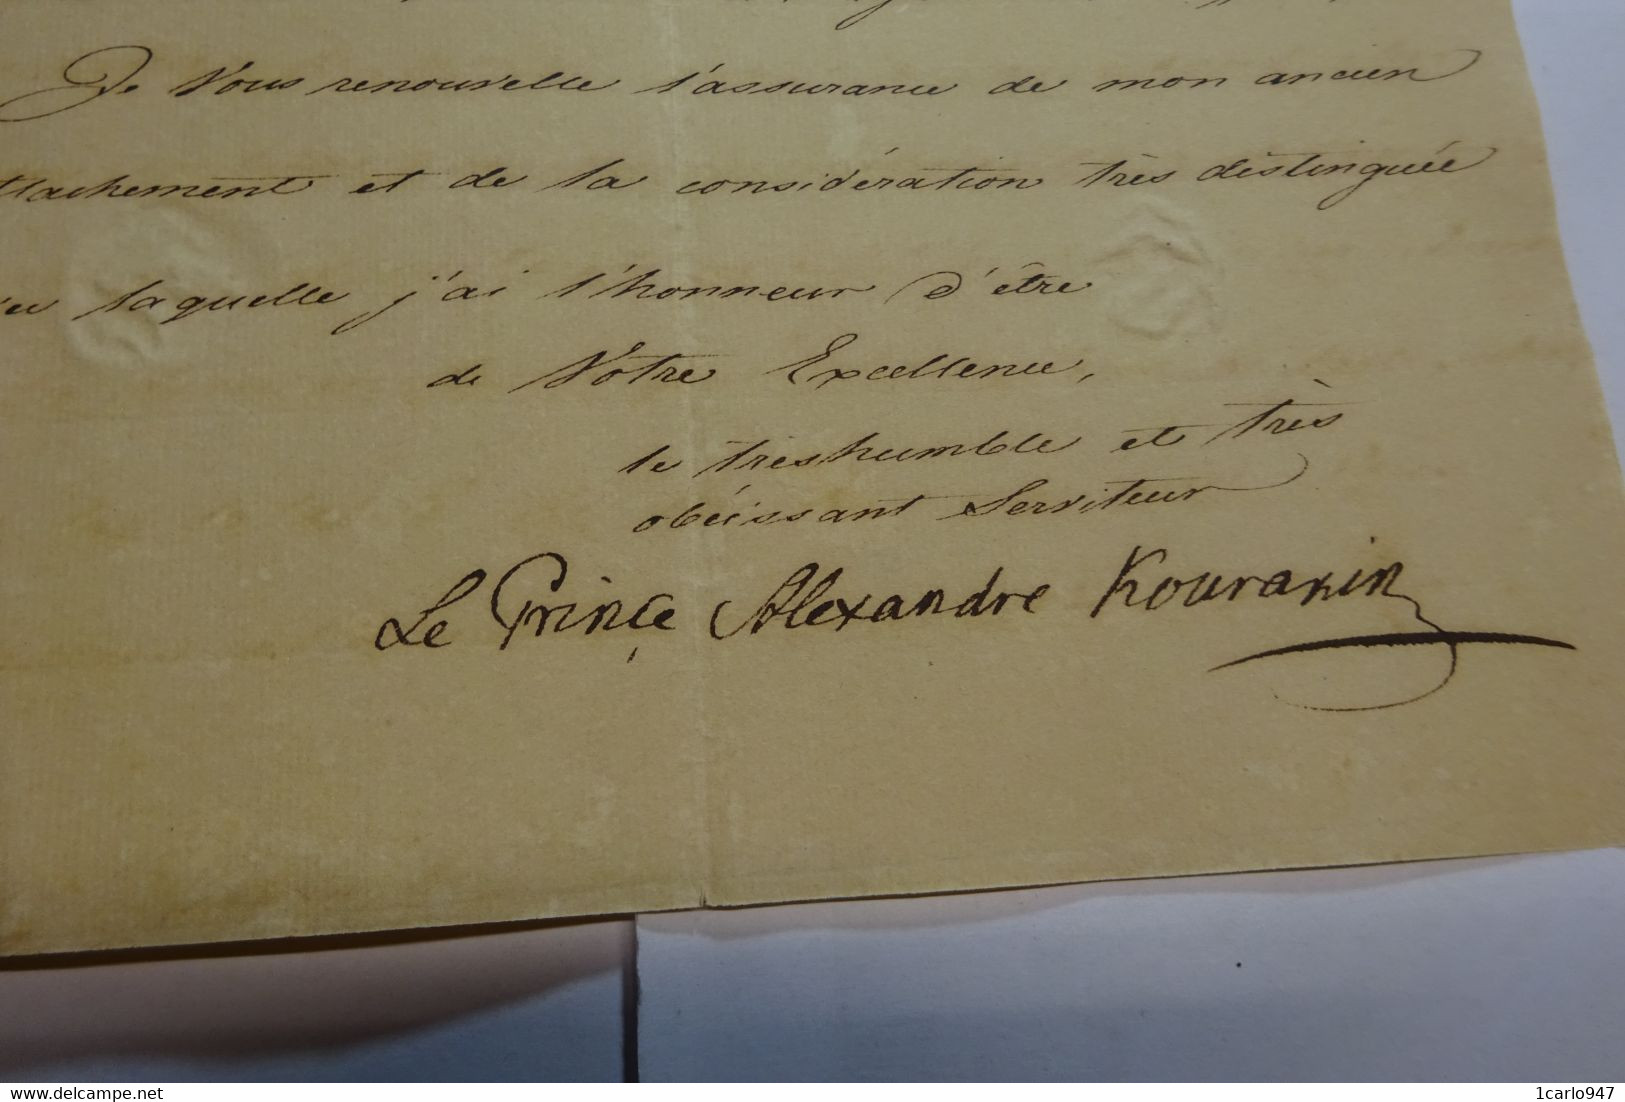 Je Vous renouvelle l'assurance de mon ancien
ttachement et de la considération très distinguée
laquelle j'ai l'honneur d'être
de Votre Excellence,
le trèshumble et très
obéissant Serviteur
Le Prince Alexandre Kourakin
www.delcampe.net
1carlo947